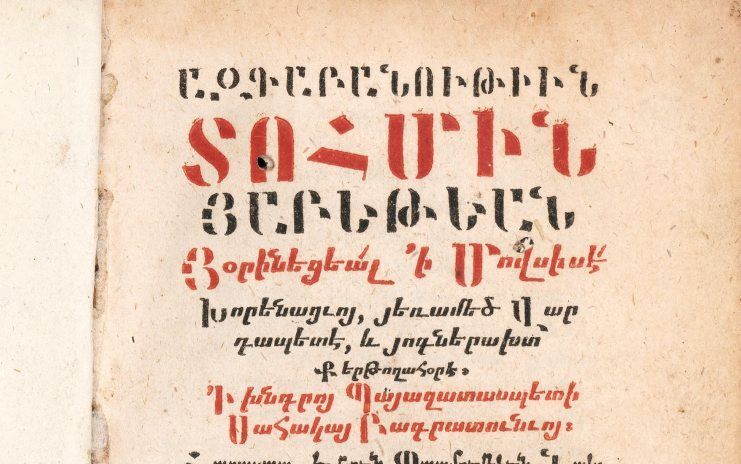 ԱԶԳԱՐԱՆՈՒԹԻՒՆ
ՏՈՀՄԻՆ
ՅԱԲԵԹԵԱՆ
Յօրինեցեալ ՚Ի Մովսիսէ՛
Խորենացւոյ, յեռամեծ Վար
դապետէ, և յոգներախտ՝
Քերթողահօրէ։
՚Ի խնդրոյ Պայազատասպետի
Սահակայ Բագրատունւոյ։